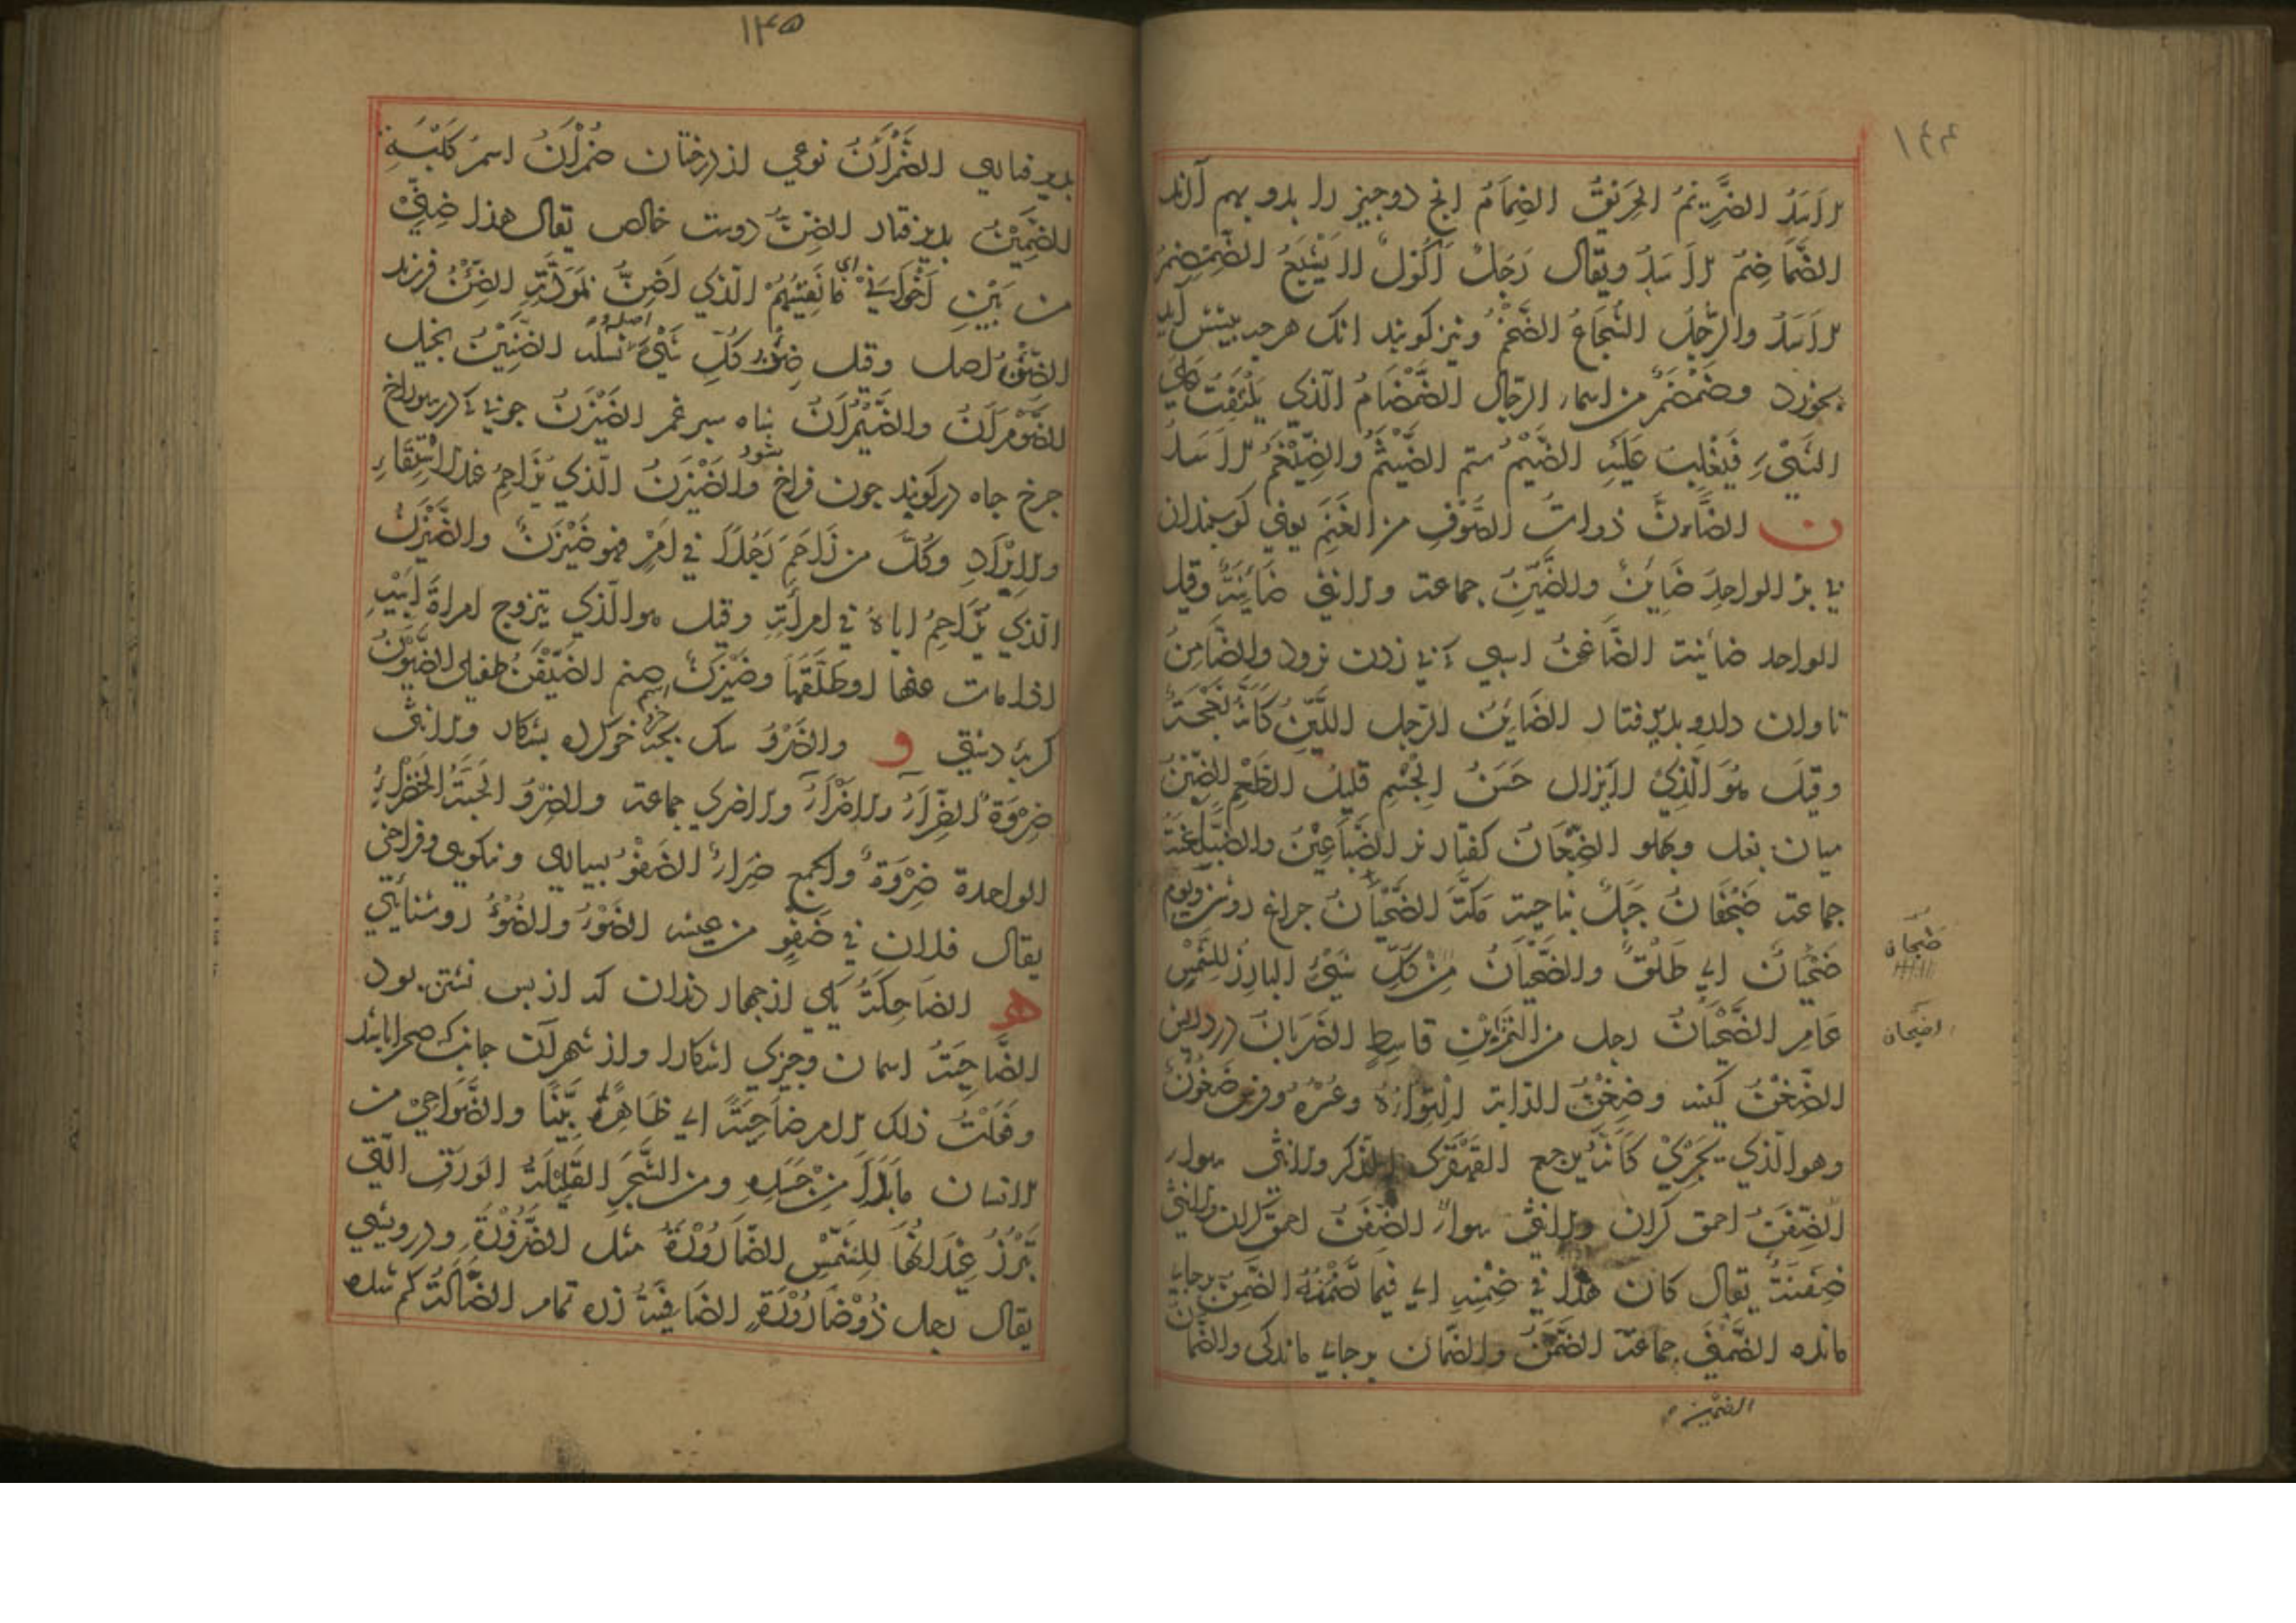 ١٤٤
الاسَدُ الضِّرْتِمُ الحَرَنْقُ الضِمَامُ انج دو جيز را بدو بهم آرند
الضُّمَاضِمُ الاَسَدُ ويقال رَجُلٌ اَكُولٌ لا يَشْبَعُ الضَّمْضَمُ
الاَسَدُ والرَّجُلُ الشُجَاعُ الضَّخْمُ ونيز كويند انك هرجه بيشش آيد
بخورد وضَمْضَمٌ من اسماء الرجال الضَّمْضَامُ الّذي يَلْتَفِتُ على
الشَيْءِ فَيَغْلِبُ عَلَيْهِ الضَيْمُ ستم الضَّيْثَمُ والضَّيْغَمُ الاَسَدُ
ن الضَّاْنُ ذوات الصُّوْفِ من الغَنَمِ يعني كوسبندان
با بز الواحِدُ ضَايِنٌ والضَّئِينُ جماعة والانثى ضَائِنَةٌ وقيل
الواحد ضائنة الضَّاغِنُ اسبي كه تا زدن نرود والضَّامِنُ
تاوان دار وبذيرفتار الضَايِنُ الرّجل اللَّيِّنُ كَاَنَّهُ نَعْجَةٌ
وقِيْلَ هُوَ الّذِيْ لايَزال حَسَنُ الجِسْمِ قَلِيْلُ الطَّعْمِ الضِّبْنُ
ميان بغل وبهلو الضِّبْعَانُ كفتار نر الضَّبَاعِيْنُ والضَّبَاعِنَةُ
جماعة ضَجْنَانُ جَبَلٌ بناحية مَكَّةَ الضَّحْيَانُ جراغ روشن ويوم
ضَحْيَانٌ اى طَلْقٌ والضَّحْيَانُ مِنْ كُلِّ شَيْءٍ البارِزُ للشَّمْسِ
عَامِر الضَّحْيَانُ رجل من النَمْرِ بْنِ قاسِطٍ الضَرَبَانُ
الضِّغْنُ كينه وضِغْنُ الدّابة وفرس ضَغُوْنٌ
وهو الّذي يَجْرِيْ كَاَنَّهُ يرجع القَهْقَرى الذكر والانثى سواء
الضِّفَنُّ احمق كران والانثى سواءٌ الضِّفَنُّ احمق كران والانثى
ضِفَنَّةٌ يقال كان هٰذا في ضِمْنِهِ اى فيما تَضَمَّنَهُ الضَّمِنُ برجاى
مانده الضَّمْنى جماعة الضَّمَنُ والضّمان برجاى ماندكى والضَّمانُ
الضمين
ضجنان
الضجنان
١٤٥
بذيرفتارى الضُّمْرَانُ نوعي از درختان ضُمْرَانُ اسم كَلْبَةٍ
الضَّمِيْنُ بذيرفتار الضِنُّ دوست خالص يقال هذا ضِنِّيْ
من بَيْنِ اَخْوَانِيْ اى الّذي اَضِنُّ بمَوَدَّتِهِ الضِّنْءُ فرزند
الضِّنْءُ اصل وقيل ضِنْءُ كُلِّ شَيْءٍ نَسْلُهُ الضَّنِيْنُ بخيل
الضَّوْمَرَانُ والضَّيْمُرَانُ شاه سبرغم الضَيْزَنُ جوبى كه در سوراخ
جرخ جاه در كويند جون فراخ شود والضَيْزَنُ الّذي يُزَاحِمُ عند الاسْتِقَاءِ
والاِيْرَادِ وكُلُّ من زَاحَمَ رَجُلًا في اَمْرٍ فهو ضَيْزَنٌ والضَّيْزَنُ
الّذي يُزَاحِمُ اباهُ في امراَتِهِ وقيل هو الّذي يتزوج امراةَ اَبِيْهِ
اذا مات عنها او طَلَّقَهَا وضَيْزَنٌ اسم صنم الضَيْفَنُ طفيلى الضَيْوَنُ
كربه دشتى و والضِرْوُ سك بجه خوكرده بشكار والانثى
ضِرْوَةٌ الضِّرَاءُ والاَضْرَاءُ والاضرى جماعة والضِرْوُ الحَبَّةُ الخَضْرَاءُ
الواحدة ضِرْوَةٌ والجمع ضِرَاءٌ الضَفْوُ بسيارى ونيكويى وفراخى
يقال فلان في ضَفْوٍ من عيشه الضَوْءُ والضُوْءُ روشنايى
ه الضَاحِكَةُ يكى از جهار دندان كه از بس نشتر بود
الضَّاحِيَةُ اسمان وجيزى اشكارا واز شهر آن جانب كه صحرا باشد
وفَعَلْتُ ذلك الامر ضَاحِيَةً اى ظَاهِرَةً بَيِّنًا والضَّوَاحِيْ من
الانسان مابَدَا مِنْ جَسَدِهِ ومن الشَّجَرِ القَلِيْلَةُ الوَرَقِ الّتي
تَبْرُزُ عِيْدَانُهَا لِلشَمْسِ الضَّارُوْرَةُ مثل الضَّرُوْرَةِ ودرويشى
يقال رجل ذُوْ ضَارُوْرَةٍ الضَافِيَةُ زره تمام الضَّالَّةُ كم شده